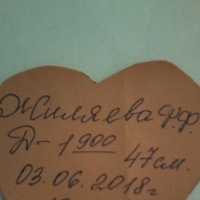 Жиляева ф.ф.
Д-1900
47см.
03.06.2018г